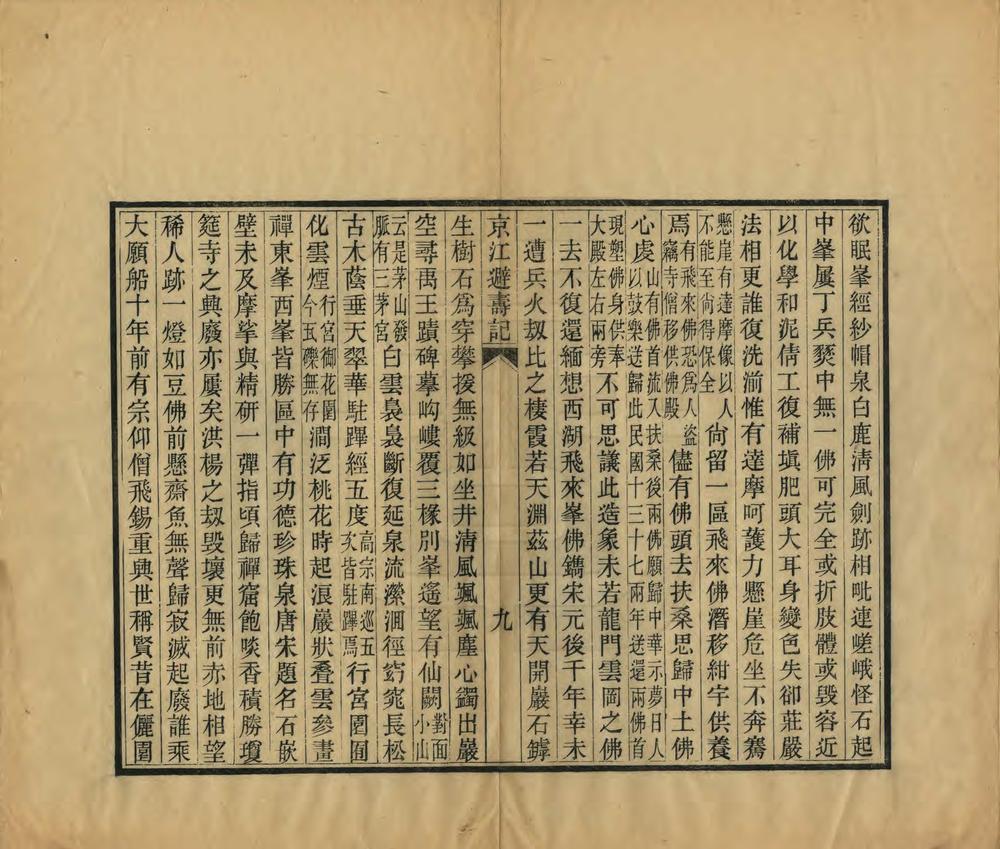 欲眠峯經紗帽泉白鹿清風劍跡相毗連嵯峨怪石起
中峯屢丁兵燹中無一佛可完全或折肢體或毀容近
以化學和泥倩工復補塡肥頭大耳身變色失卻莊嚴
法相更誰復洗湔惟有達摩呵護力懸崖危坐不奔騫
懸崖有達摩像以人
不能至尙得保全
尙留一區飛來佛潛移紺宇供養
焉有飛來佛恐爲人盜
竊寺僧移供佛殿
儘有佛頭去扶桑思歸中土佛
心虔
山有佛首流入扶桑後兩佛願歸中華示夢日人
以鼓樂送歸此民國十三十七兩年送還兩佛首
現塑佛身供奉
大殿左右兩旁
不可思議此造象未若龍門雲岡之佛
一去不復還緬想西湖飛來峯佛鐫宋元後千年幸未
一遭兵火刼比之棲霞若天淵茲山更有天開巖石罅
京江避壽記
九
生樹石爲穿攀援無級如坐井清風颯颯塵心蠲出巖
空尋禹王蹟碑摹岣嶁覆三椽別峯遙望有仙闕
對面
小山
云是茅山發
脈有三茅宮
白雲裊裊斷復延泉流瀠洄徑窈窕長松
古木蔭垂天翠華駐蹕經五度
高宗南巡五
次皆駐蹕焉
行宮圍囿
化雲煙
行宮御花園
今瓦礫無存
澗泛桃花時起浪巖狀叠雲參畫
禪東峯西峯皆勝區中有功德珍珠泉唐宋題名石嵌
壁未及摩挲與精研一彈指頃歸禪窟飽啖香積勝瓊
筵寺之興廢亦屢矣洪楊之刼毀壞更無前赤地相望
稀人跡一燈如豆佛前懸齋魚無聲歸寂滅起廢誰乘
大願船十年前有宗仰僧飛錫重興世稱賢昔在儷園